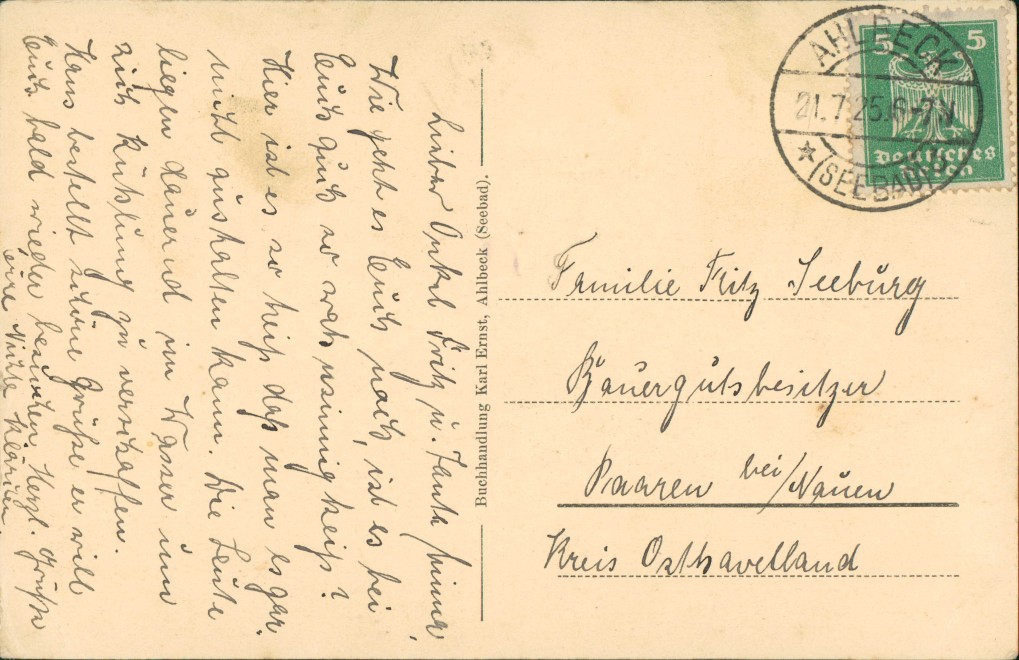 Lieber Onkel Fritz u. Tante Minna!
Wie geht es Euch noch, ist es bei
Euch auch so wahnsinnig heiß?
Hier ist es so heiß daß man es gar
nicht aushalten kann. Die Leute
liegen dauernd im Wasser um
sich Kühlung zu verschaffen.
Hans bestellt schöne Grüße er will
Euch bald wieder besuchen. Herzl. Grüße
eure Nichte Klärchen.
Buchhandlung Karl Ernst, Ahlbeck (Seebad).
AHLBECK
21.7.25.6-7N
★ (SEEBAD)
5 5
Deutsches
Reich
Familie Fritz Seeburg
Bauergutsbesitzer
Paaren bei/Nauen
Kreis Osthavelland